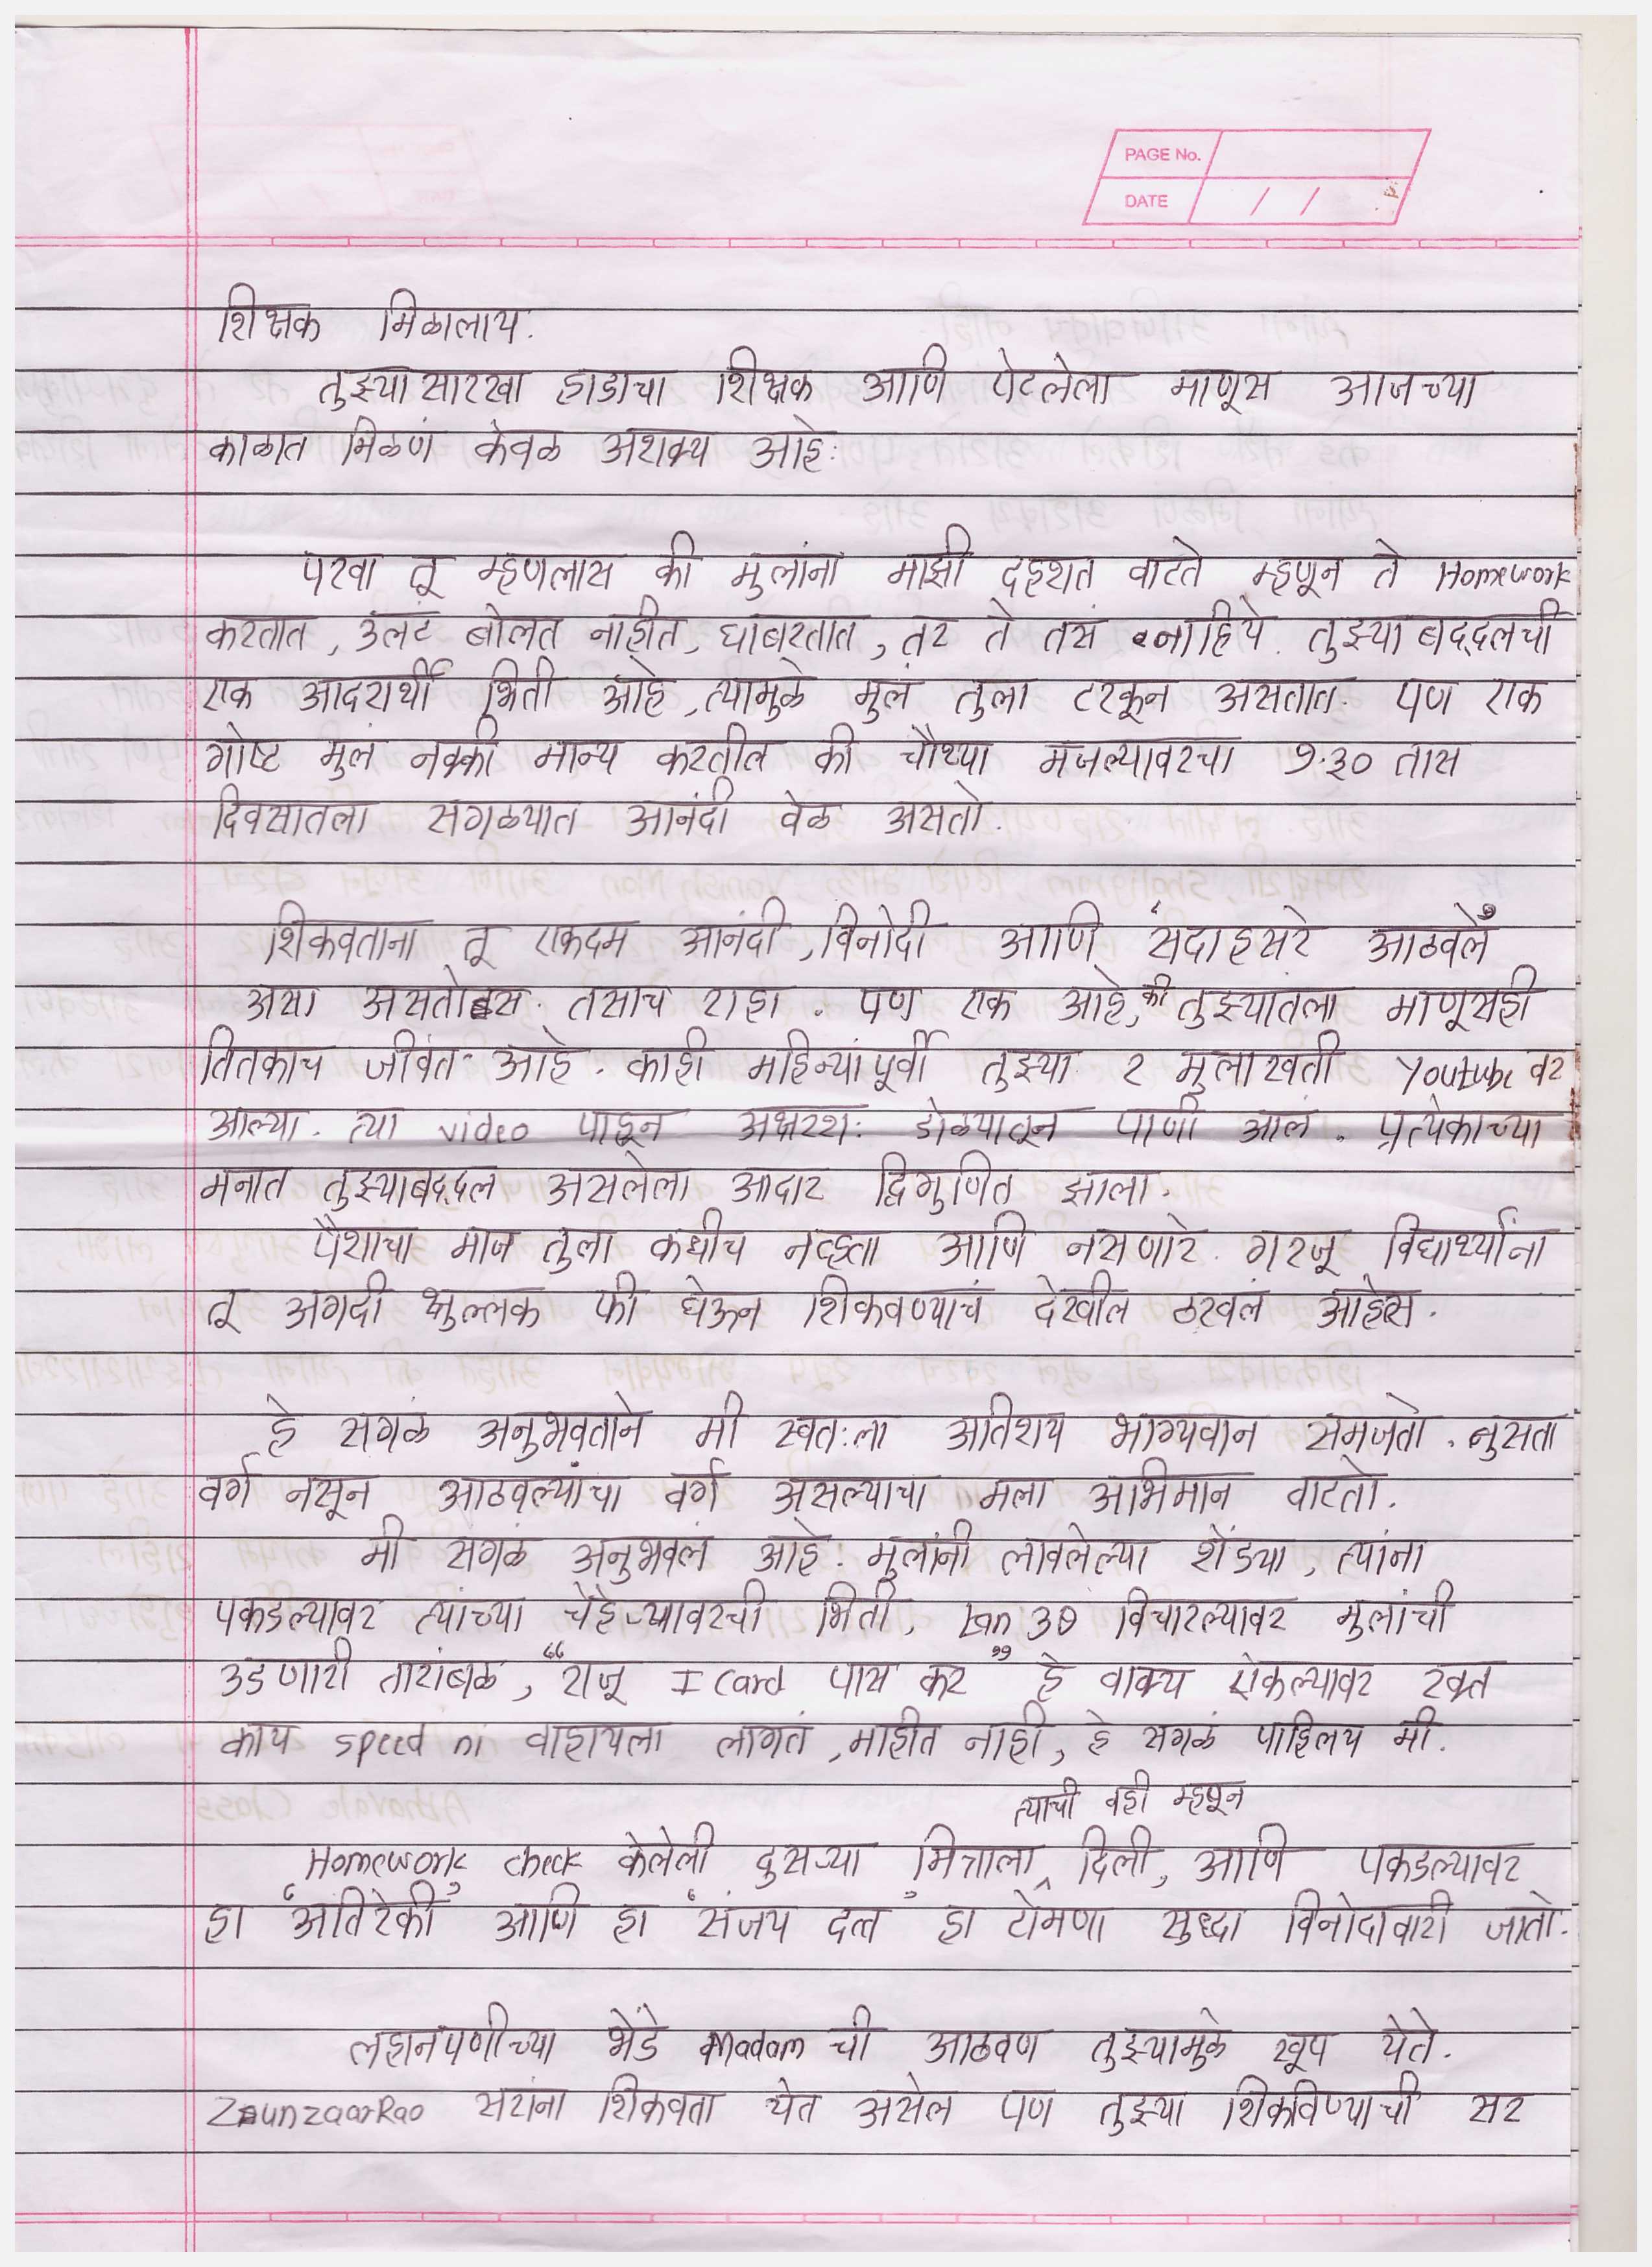 PAGE No.
DATE / /
शिक्षक मिळालाय.
तुझ्यासारखा हाडाचा शिक्षक आणि पेटलेला माणूस आजच्या
काळात मिळणं केवळ अशक्य आहे.
परवा तू म्हणलास की मुलांना माझी दहशत वाटते म्हणून ते Homework
करतात, उलट बोलत नाहीत, घाबरतात, तर ते तसं नाहिये. तुझ्याबद्दलची
एक आदरार्थी भिती आहे, त्यामुळे मुलं तुला टरकून असतात. पण एक
गोष्ट मुलं नक्की मान्य करतील की चौथ्या मजल्यावरचा ७.३० तास
दिवसातला सगळ्यात आनंदी वेळ असतो.
शिकवताना तू एकदम आनंदी, विनोदी आणि 'सदाहसरे आठवले'
असा असतोस. तसाच राहा. पण एक आहे, की तुझ्यातला माणूसही
तितकाच जीवंत आहे. काही महिन्यांपूर्वी तुझ्या २ मुलाखती Youtube वर
आल्या. त्या video पाहून अक्षरशः डोळ्यातून पाणी आलं. प्रत्येकाच्या
मनात तुझ्याबद्दल असलेला आदार द्विगुणित झाला.
पैशाचा माज तुला कधीच नव्हता आणि नसणारे. गरजू विद्यार्थ्यांना
तू अगदी क्षुल्लक फी घेऊन शिकवण्याचं देखील ठरवलं आहेस.
हे सगळं अनुभवताने मी स्वतःला अतिशय भाग्यवान समजतो. नुसता
वर्ग नसून आठवल्यांचा वर्ग असल्याचा मला अभिमान वाटतो.
मी सगळं अनुभवलं आहे. मुलांनी लावलेल्या शेंड्या, त्यांना
पकडल्यावर त्यांच्या चेहेऱ्यावरची भिती, tan 30 विचारल्यावर मुलांची
उडणारी तारांबळ, "राजू I Card पास कर" हे वाक्य ऐकल्यावर रक्त
काय speed नी वाहायला लागतं, माहीत नाही, हे सगळं पाहिलय मी.
त्याची वही म्हणून
Homework check केलेली दुसऱ्या मित्राला ^ दिली, आणि पकडल्यावर
हा 'अतिरेकी' आणि हा 'संजय दत्त' हा टोमणा सुध्दा विनोदावारी जातो.
लहानपणीच्या भेंडे madam ची आठवण तुझ्यामुळे खूप येते.
ZaunzaarRao सरांना शिकवता येत असेल पण तुझ्या शिकविण्याची सर